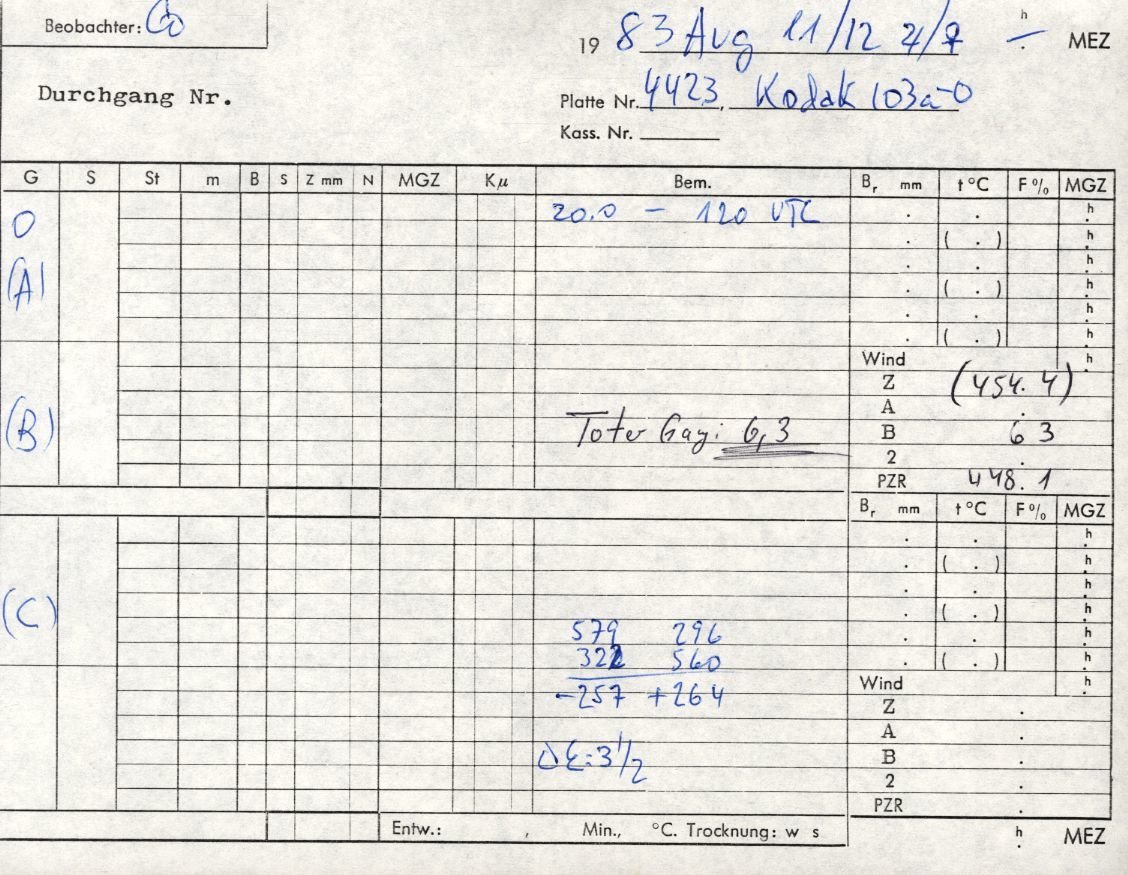 Beobachter: Co
19 83 Aug 11/12 4/7 — h . MEZ
Durchgang Nr.
Platte Nr. 4423, Kodak 103a-O
Kass. Nr.
G S St m B s Z mm N MGZ Kµ Bem. Br mm t °C F % MGZ
O 20.0 — 120 UTC . . h
. ( . ) h
(A) . . h
. ( . ) h
. . h
. ( . ) h
Wind h
Z (454.4)
A .
(B) Toter Gag: 6,3 B 6 3
2 .
PZR 448.1
Br mm t °C F % MGZ
. . h
. ( . ) h
. . h
(C) . ( . ) h
579 296 . . h
322 560 . ( . ) h
-257 +264 Wind h
Z .
A .
Δε=3 1/2 B .
2 .
PZR .
Entw.: , Min., °C. Trocknung: w s h . MEZ